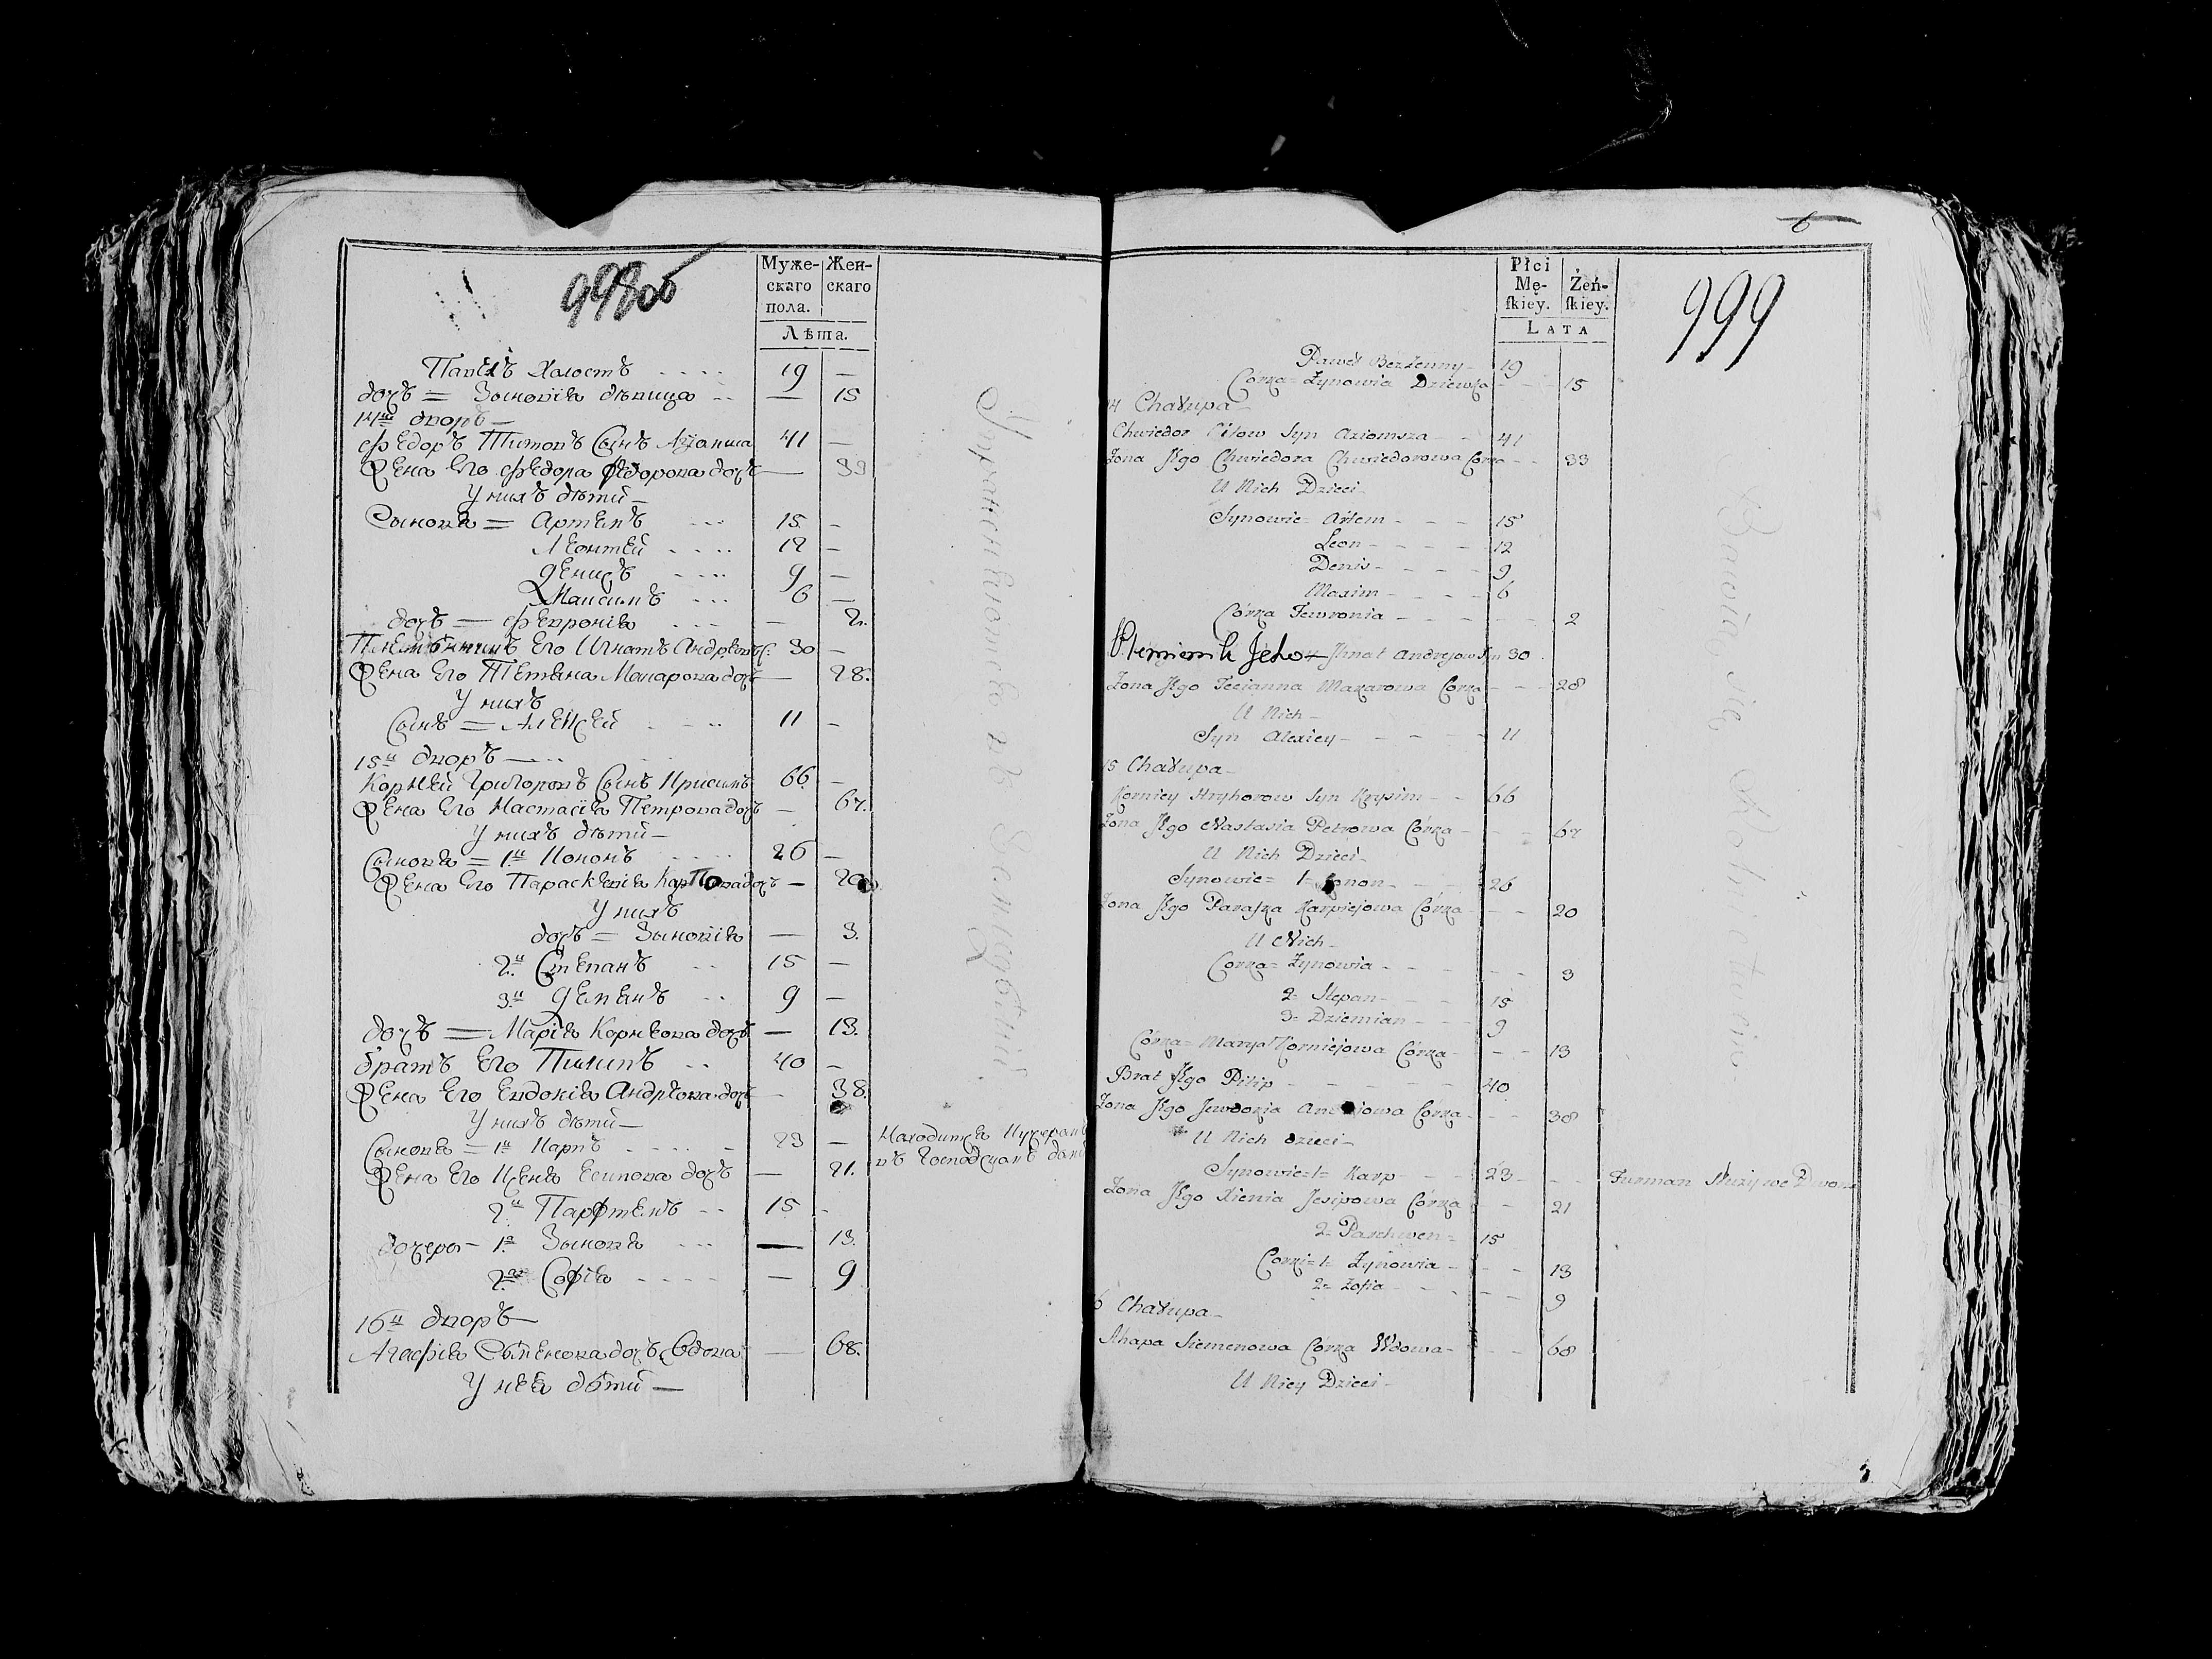 998об
Муже-
скаго
пола.
Жен-
скаго
Лѣта.
Павелъ Холостъ 19 —
дочь = Зыновія дѣвица — 15
14й дворъ —
Федоръ Титовъ Сынъ 41 —
Жена Его Федора Федорова дочь — 33
У нихъ дѣти —
Сыновя = Артемъ 15 —
Леонтей 12 —
Денисъ 9 —
Максимъ 6 —
дочь — Февронія — 2.
Племянникъ Его Игнатъ Андреевъ С. 30 —
Жена Его Тетяна Макарова дочь — 28.
У нихъ
Сынъ = Алексей 11 —
15й дворъ —
Корней Григоровъ Сынъ Крисимъ 66 —
Жена Его Настасія Петрова дочь — 67.
У нихъ дѣти —
Сыновя = 1й Кононъ 26 —
Жена Его Параскевія Карпова дочь — 20
У нихъ
дочь = Зыновія — 3.
2й Степанъ 15 —
3й Демянъ 9 —
дочь — Марія Корнеева дочь — 13.
братъ Его Пилипъ 40 —
Жена Его Евдокія Андреева дочь — 38.
У нихъ дѣти —
Сыновя = 1й Карпъ 23 — Находится Кучеромъ
Жена Его Ксеня Есипова дочь — 21. въ Господскомъ
2й Парфтенъ 15 -
дочери — 1я Зыновя — 13.
2я Софія — 9
16й дворъ —
Агафія Семенова дочь Вдова — 68.
У нея дѣти —
6
999
Płci
Mę-
skiey.
Żeń-
skiey.
LATA
Paweł Bezżenny 19
Córka = Zynowia Dziewka 15
14 Chałupa
Chwiedor Citow Syn 41
Żona Jego Chwiedora Chwiedorowa Córka 33
U Nich Dzieci
Synowie = Artem 15
Leon 12
Denis 9
Maxim 6
Córka Jewronia 2
Plemiennik Jeho Ihnat Andrejow Syn 30
Żona Jego Tecianna Makarowa Córka 28
U Nich
Syn Alexiey 11
15 Chałupa
Korniey Hryhorow Syn Krysim 66
Żona Jego Nastasia Petrowa Córka 67
U Nich Dzieci
Synowie = 1= Konon 26
Żona Jego Paraska Karpiejowa Córka 20
U Nich
Córka = Zynowia 3
2= Stepan 15
3= Dziemian 9
Córka = Marya Korniejowa Córka 13
Brat Jego Pilip 40
Żona Jego Jewdokia Andreiowa Córka 38
U Nich dzieci
Synowie = 1= Karp 23 Furman Służy we Dworze
Żona Jego Xienia Jesipowa Córka 21
2= Parchwen 15
Corki = 1= Zynowia 13
2= Zofia 9
6 Chałupa
Ahapa Siemenowa Córka Wdowa 68
U Niey Dzieci